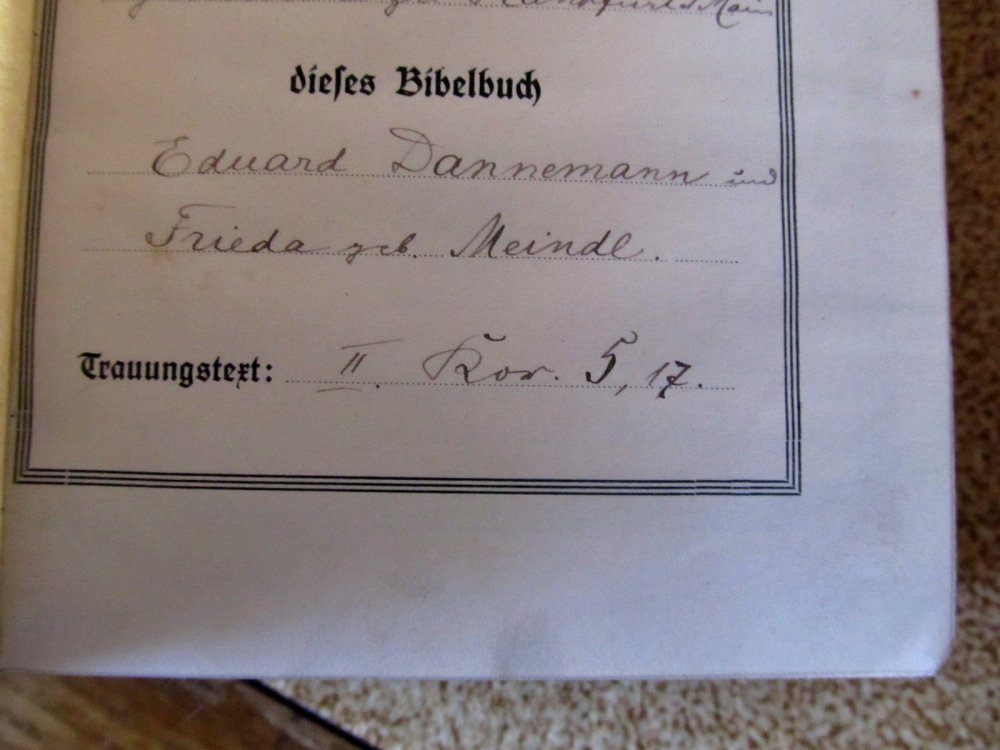 Frankfurt a/Main
dieses Bibelbuch
Eduard Dannemann und
Frieda geb. Meindl.
Trauungstext: II. Kor. 5, 17.